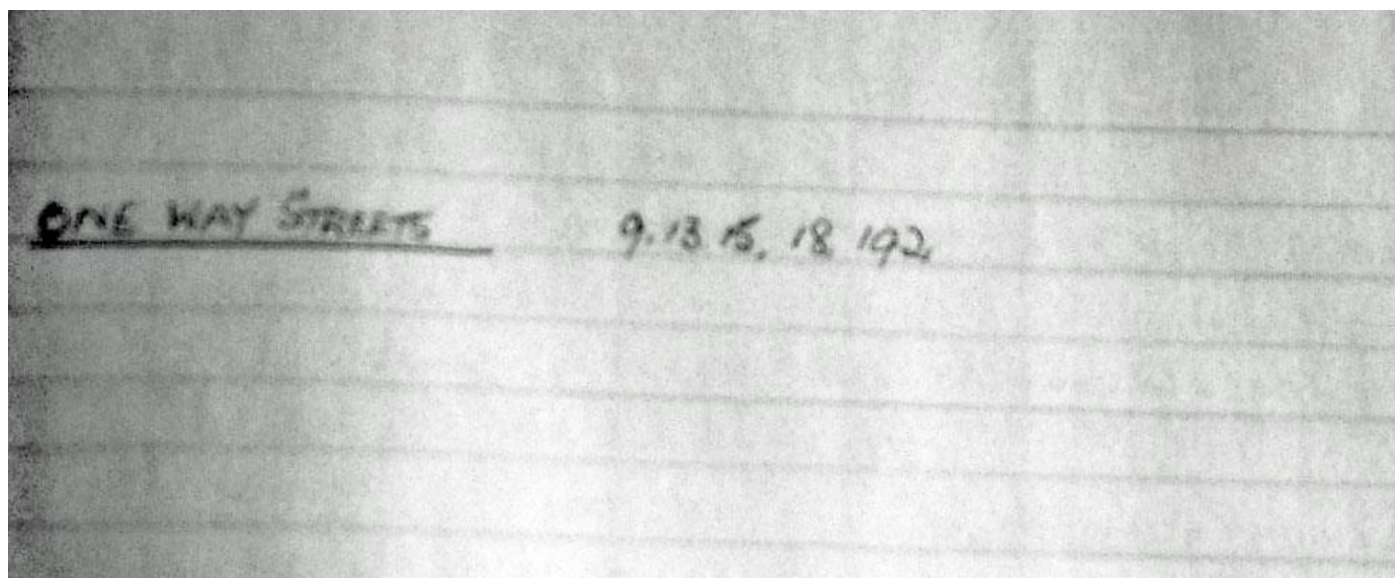 ONE WAY STREETS 9.13 15, 18 192,